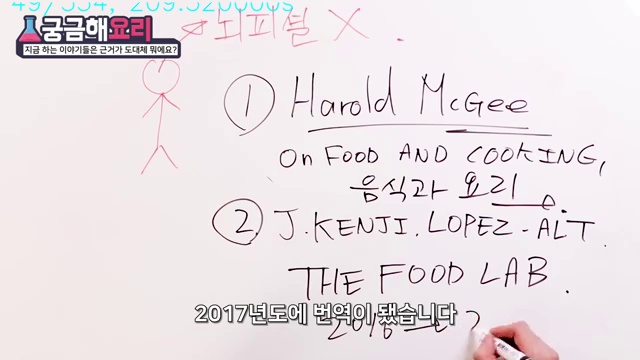 49/554, 209.520000s
궁금해요리
지금 하는 이야기들은 근거가 도대체 뭐에요?
뇌피셜 X.
① Harold McGee
ON FOOD AND COOKING,
음식과 요리.
② J. KENJI. LOPEZ-ALT.
THE FOOD LAB.
2017년도에 번역이 됐습니다
2016